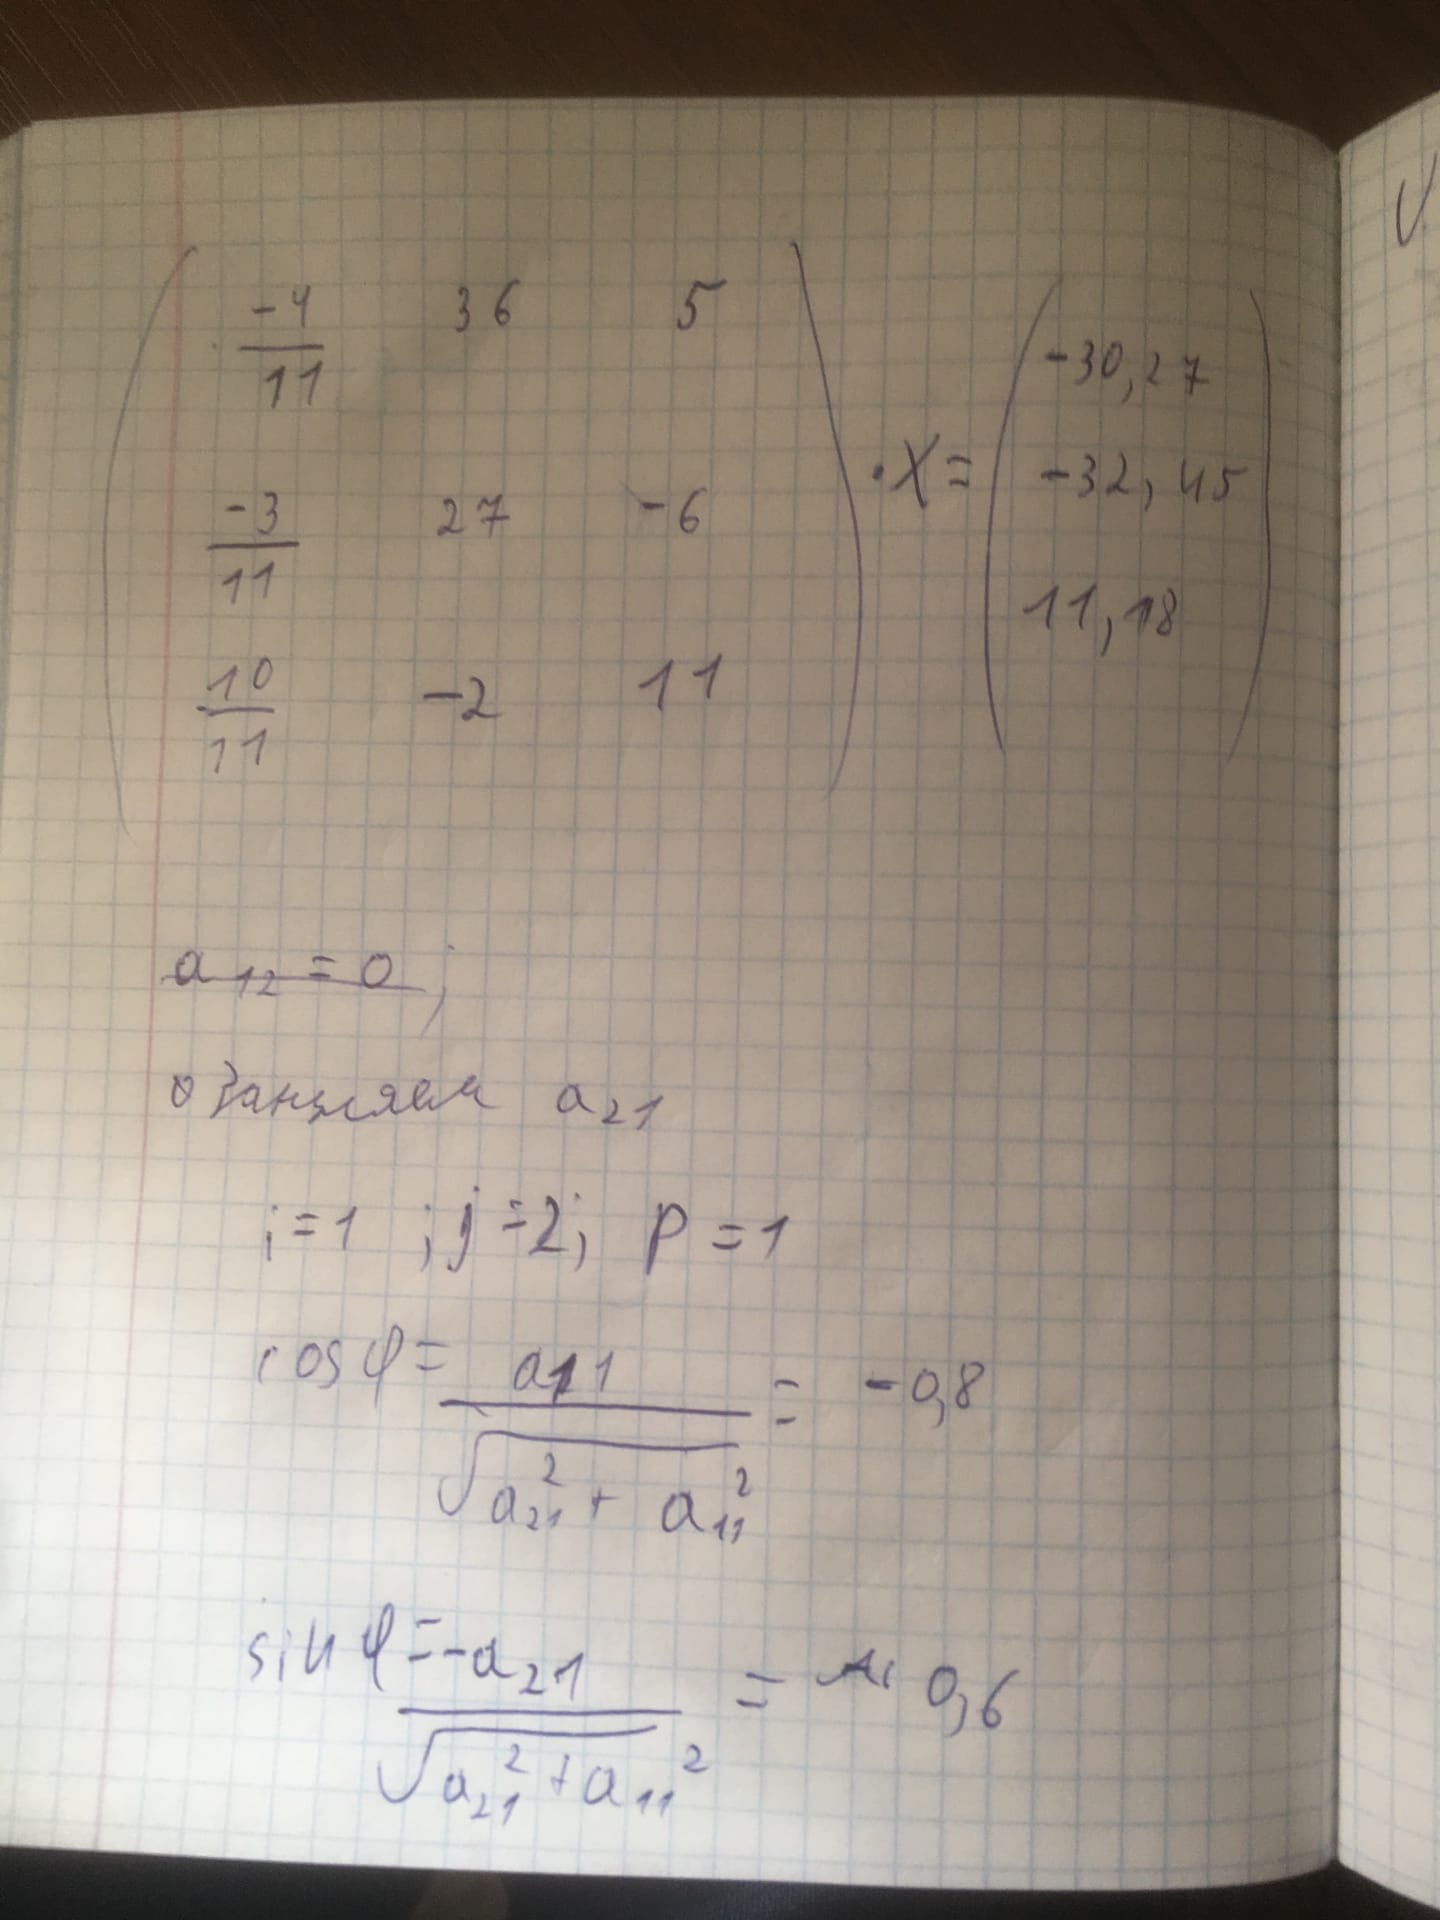 -4/11 36 5
-3/11 27 -6
10/11 -2 11
· X =
-30,27
-32,45
11,18
a₁₂ = 0 ;
a₂₁
i = 1 ; j = 2; p = 1
cos φ = a₁₁ / √(a₂₁² + a₁₁²) = -0,8
sin φ = -a₂₁ / √(a₂₁² + a₁₁²) = 0,6